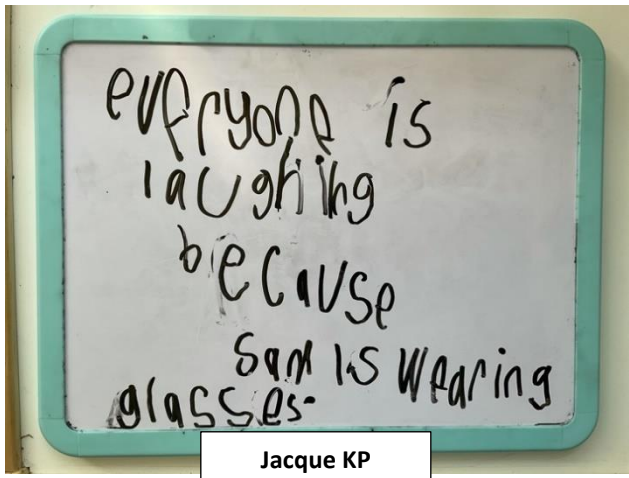 everyone is
laughing
because
sam is wearing
glasses.
Jacque KP